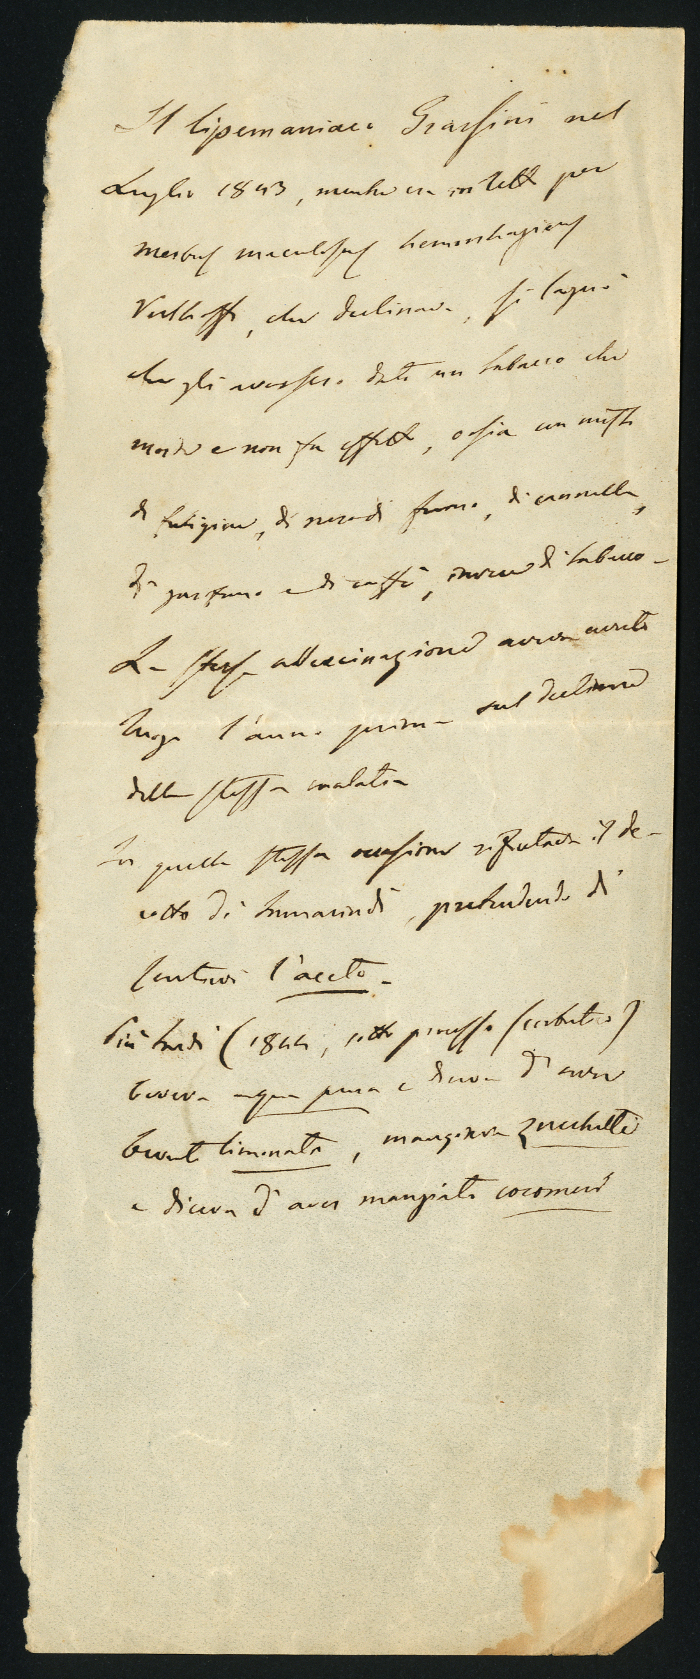 Il lipemaniaco Grassini nel
Luglio 1843, mentre era in letto per
morbus maculosus hemorrhagicus
Verlhoffi, che declinava, si lagnò
che gli avessero dato un tabacco che
morde e non fa effetto, ossia un misto
di fuligine, di nero di fumo, di cannella,
di garofano e di caffè, invece di tabacco -
La stessa allucinazione aveva avuto
luogo l'anno prima sul declinare
della stessa malatia
In quella stessa occasione rifiutava il de-
cotto di tamarindi, pretendendo di
sentirvi l'aceto -
Più tardi (1844, sotto processo scorbutico)
beveva acqua pura e diceva d'aver
bevuto limonata, mangiava zucchette
e diceva d'aver mangiato cocomeri